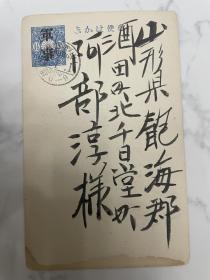 郵便はがき
軍事
山形県飽海郡
酒田町北千日堂町
阿部淳様